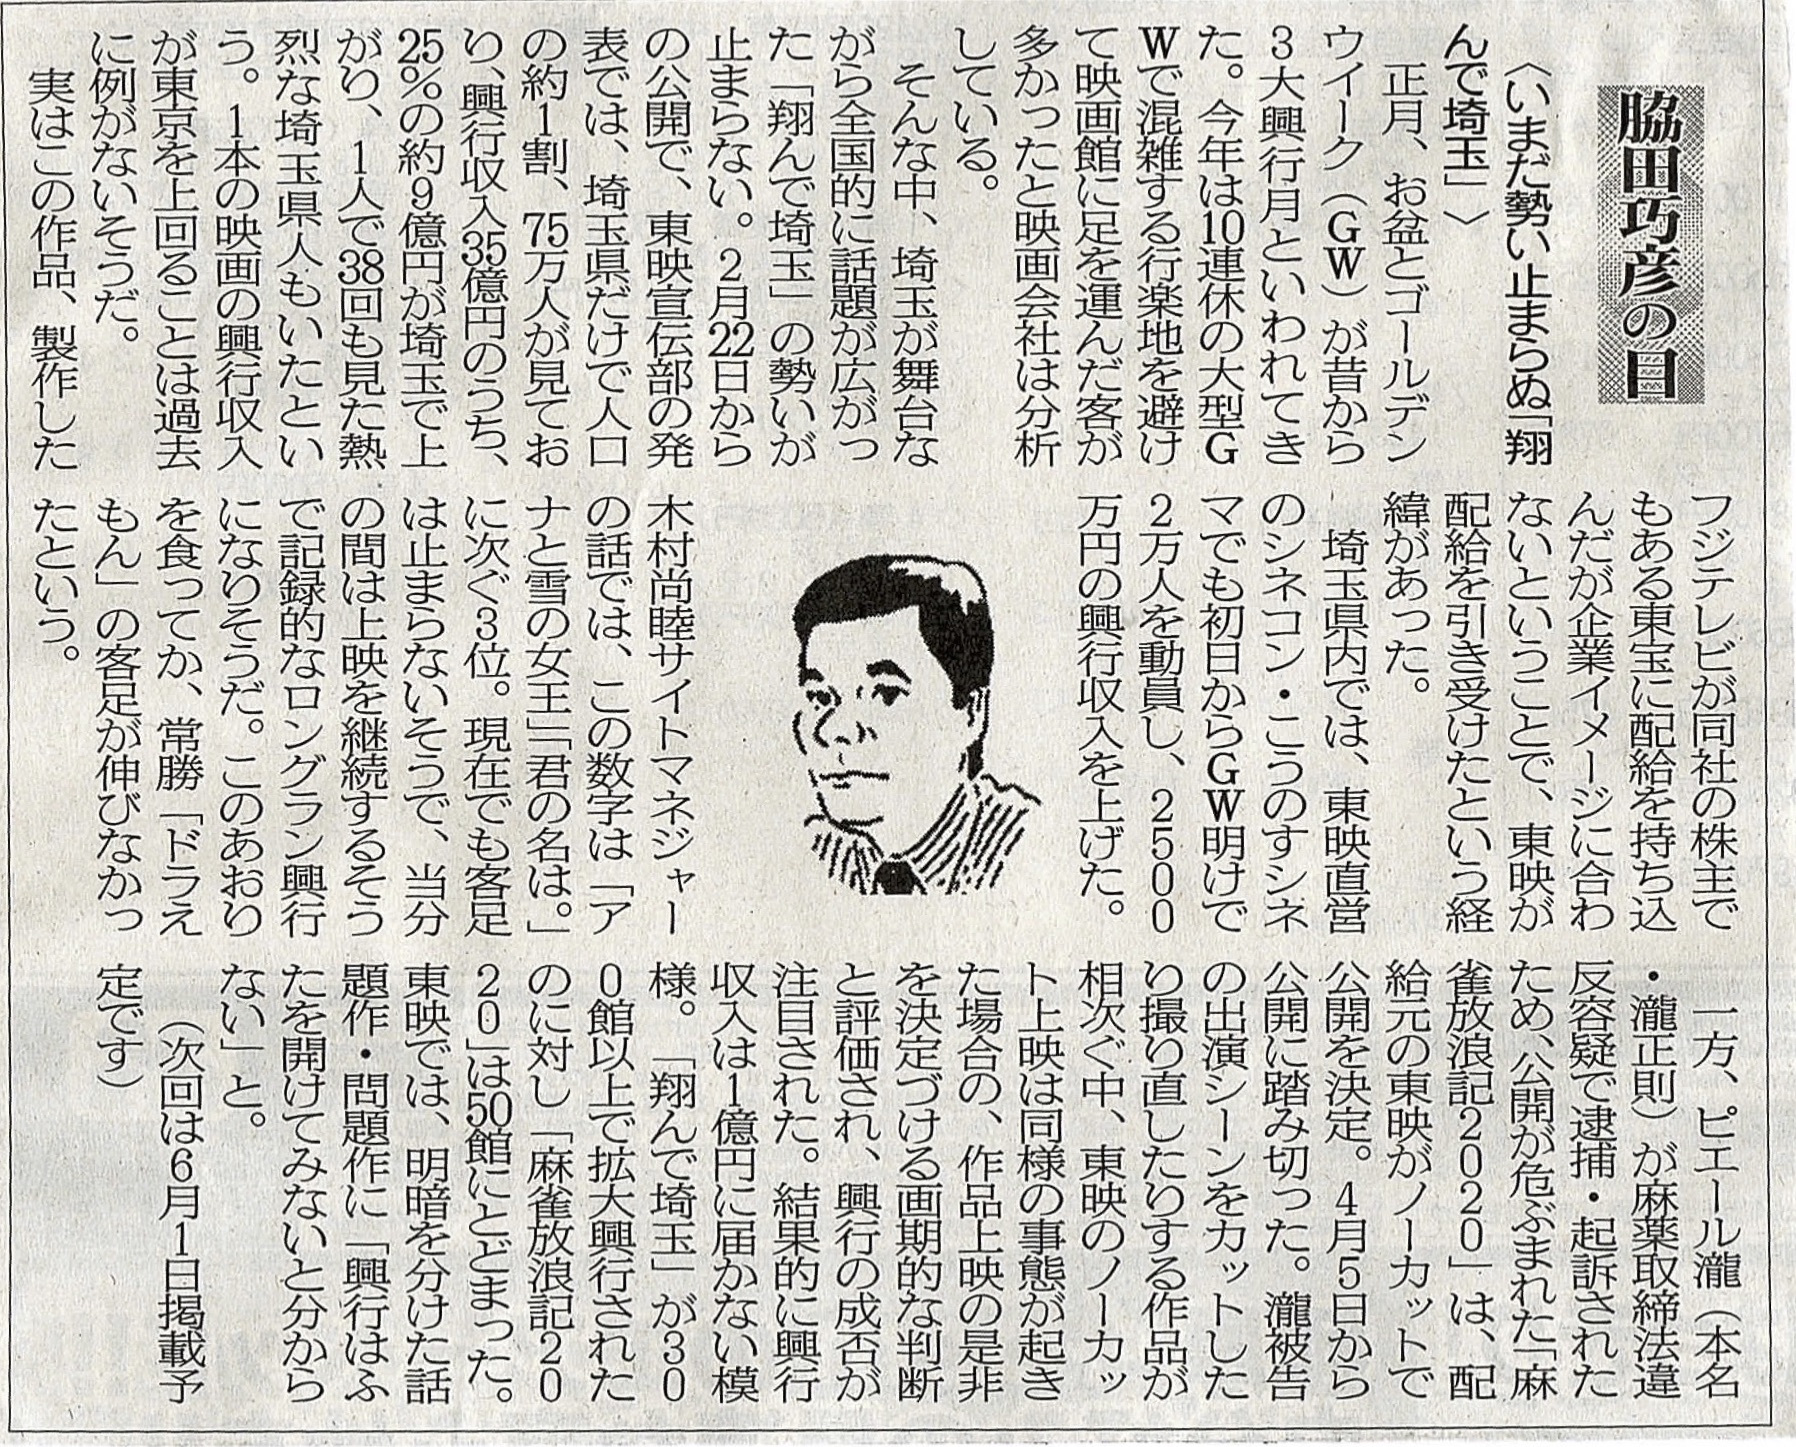 脇田巧彦の目
〈いまだ勢い止まらぬ「翔
んで埼玉」〉
正月、お盆とゴールデン
ウイーク（GW）が昔から
3大興行月といわれてき
た。今年は10連休の大型G
Wで混雑する行楽地を避け
て映画館に足を運んだ客が
多かったと映画会社は分析
している。
そんな中、埼玉が舞台な
がら全国的に話題が広がっ
た「翔んで埼玉」の勢いが
止まらない。2月22日から
の公開で、東映宣伝部の発
表では、埼玉県だけで人口
の約1割、75万人が見てお
り、興行収入35億円のうち、
25%の約9億円が埼玉で上
がり、1人で38回も見た熱
烈な埼玉県人もいたとい
う。1本の映画の興行収入
が東京を上回ることは過去
に例がないそうだ。
実はこの作品、製作した
フジテレビが同社の株主で
もある東宝に配給を持ち込
んだが企業イメージに合わ
ないということで、東映が
配給を引き受けたという経
緯があった。
埼玉県内では、東映直営
のシネコン・こうのすシネ
マでも初日からGW明けで
2万人を動員し、2500
万円の興行収入を上げた。
木村尚睦サイトマネジャー
の話では、この数字は「ア
ナと雪の女王」「君の名は。」
に次ぐ3位。現在でも客足
は止まらないそうで、当分
の間は上映を継続するそう
で記録的なロングラン興行
になりそうだ。このあおり
を食ってか、常勝「ドラえ
もん」の客足が伸びなかっ
たという。
一方、ピエール瀧（本名
・瀧正則）が麻薬取締法違
反容疑で逮捕・起訴された
ため、公開が危ぶまれた「麻
雀放浪記2020」は、配
給元の東映がノーカットで
公開を決定。4月5日から
公開に踏み切った。瀧被告
の出演シーンをカットした
り撮り直したりする作品が
相次ぐ中、東映のノーカッ
ト上映は同様の事態が起き
た場合の、作品上映の是非
を決定づける画期的な判断
と評価され、興行の成否が
注目された。結果的に興行
収入は1億円に届かない模
様。「翔んで埼玉」が30
0館以上で拡大興行された
のに対し「麻雀放浪記20
20」は50館にとどまった。
東映では、明暗を分けた話
題作・問題作に「興行はふ
たを開けてみないと分から
ない」と。
（次回は6月1日掲載予
定です）